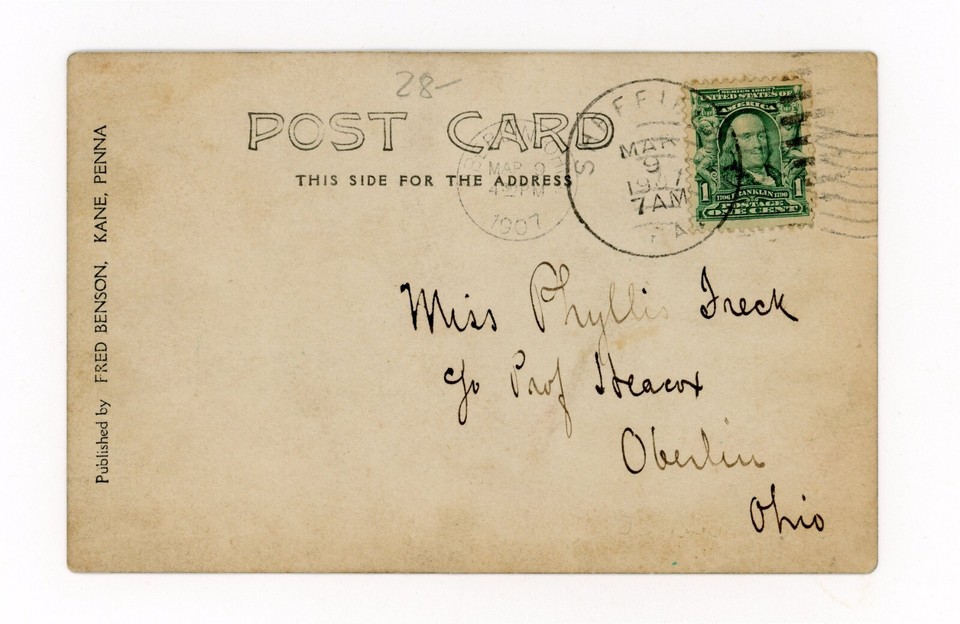 28-
POST CARD
THIS SIDE FOR THE ADDRESS
MAR 9
PM
1907
MAR
9
1907
7AM
SERIES 1902
UNITED STATES OF
AMERICA
1 FRANKLIN 1
1706 1790
POSTAGE
ONE CENT
Miss Phyllis Treck
c/o Prof Heacox
Oberlin
Ohio
Published by FRED BENSON, KANE, PENNA